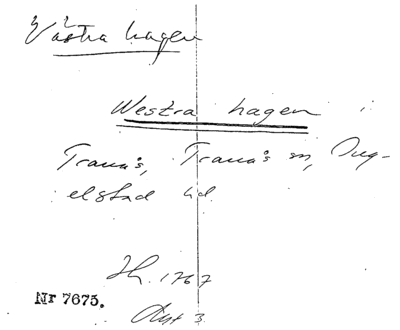 Västra hagen
Westra hagen i
Tranås, Tranås sn, Ing-
elstad hd.
Sk. 1767
Akt 3
Nr 7675.